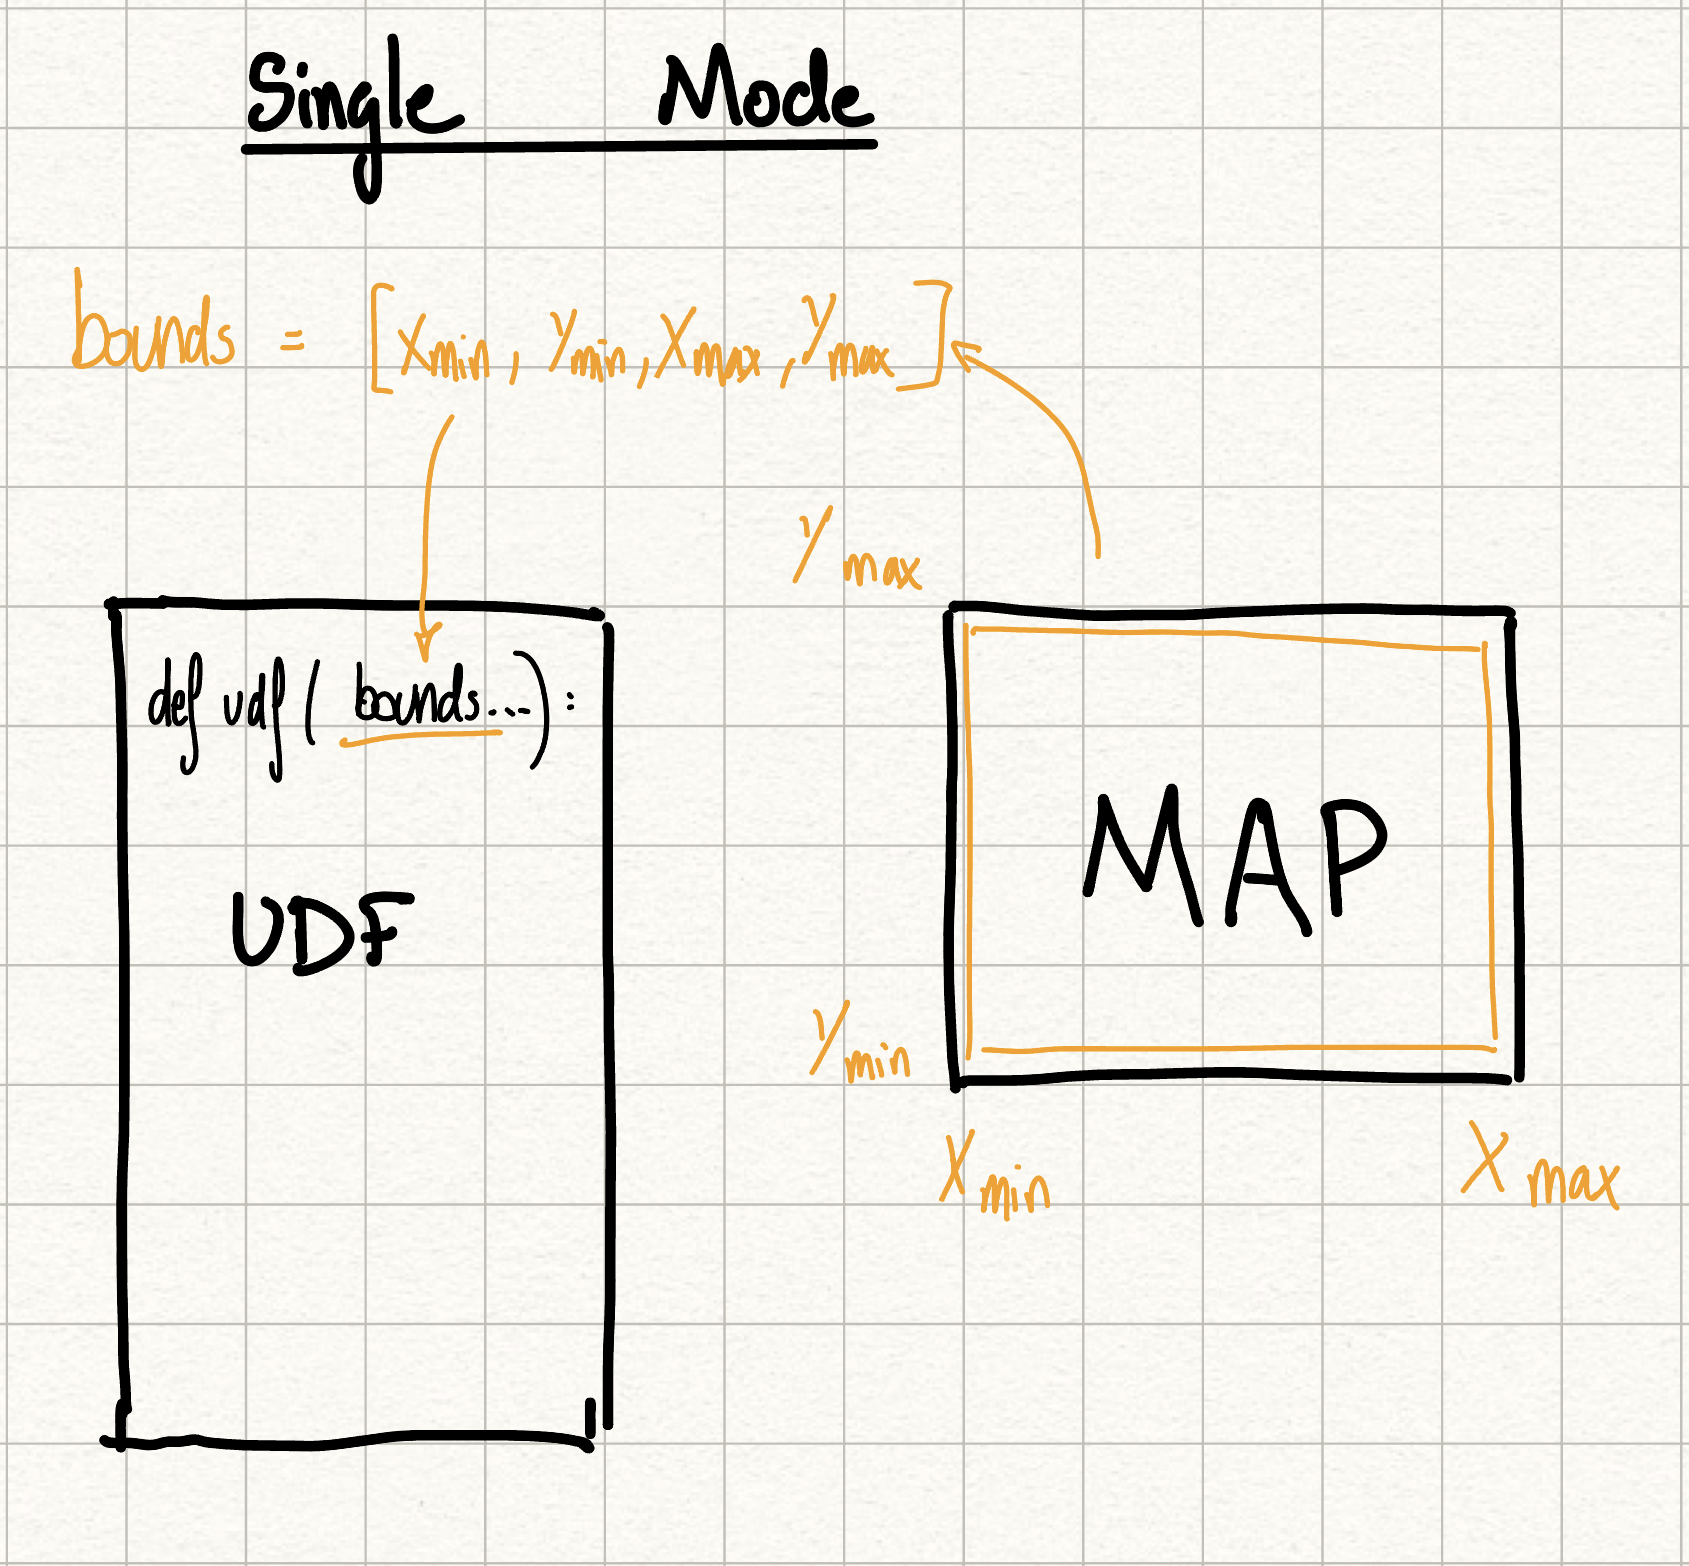 Single Mode
bounds = [Xmin, Ymin, Xmax, Ymax]
Ymax
def udf( bounds...):
MAP
UDF
Ymin
Xmin
Xmax